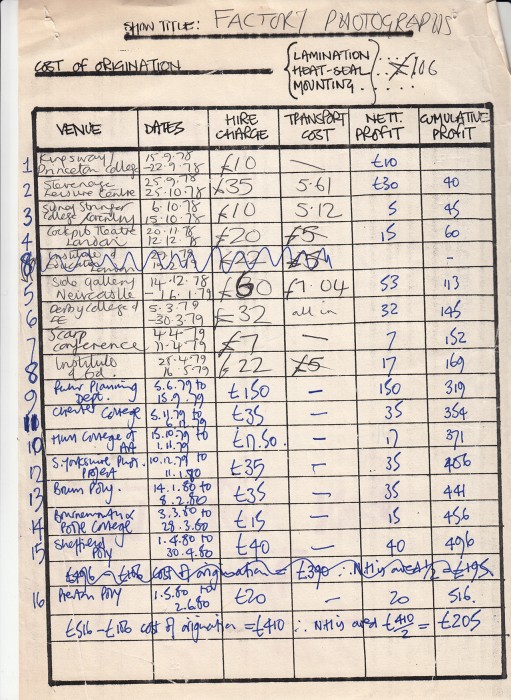 SHOW TITLE: FACTORY PHOTOGRAPHS
COST OF ORIGINATION { LAMINATION HEAT-SEAL MOUNTING } ..... £106
VENUE DATES HIRE CHARGE TRANSPORT COST NETT. PROFIT CUMULATIVE PROFIT
1 Kingsway Princeton College 15.9.78 -22.9.78 £10 — £10
2 Stevenage Leisure Centre 25.9.78 25.10.78 £35 5.61 £30 40
3 Sidney Stringer College Coventry 6.10.78 15.10.78 £10 5.12 5 45
4 Cockpit Theatre London 20.11.78 12.12.78 £20 £5 15 60
Institute of Education London £5 -
5 Side Gallery Newcastle 14.12.78 - 16.1.79 £60 £7.04 53 113
6 Derby College of FE 5.3.79 -30.3.79 £32 all in 32 145
7 Scarp conference 4.4.79 11.4.79 £7 — 7 152
8 Institute of Ed. 25.4.79 16.5.79 £22 £5 17 169
9 Planning Dept. 5.6.79 to 15.9.79 £150 — 150 319
Chester College 5.11.79 to £35 — 35 354
10 Hull College of Art 15.10.79 to 1.11.79 £17.50. - 17 371
12 S. Yorkshire Phot. Project 10.12.79 to 11.1.80 £35 - 35 406
13 Brum Poly. 14.1.80 to 8.2.80 £35 — 35 441
14 Bournemouth & Poole College 3.3.80 to 28.3.80 £15 — 15 456
15 Sheffield Poly 1.4.80 to 30.4.80 £40 — 40 496
£496 - £106 cost of origination = £390 ∴ NH is owed /2 = £195
16 Preston Poly 1.5.80 to 2.6.80 £20 - 20 516.
£516 - £106 cost of origination = £410 ∴ NH is owed £410/2 = £205